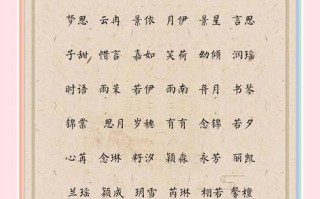 梦思 云冉 景依 月伊 景星 言思
子甜 惜言 嘉如 笑荷 幼倾 润瑶
时语 雨茉 若伊 雨南 舟月 书琴
锦棠 思月 岁穗 有有 念锦 若夕
心苒 念琳 籽汐 颖森 永芳 丽凯
兰瑶 颖成 玥雪 芮琳 栩若 馨檀